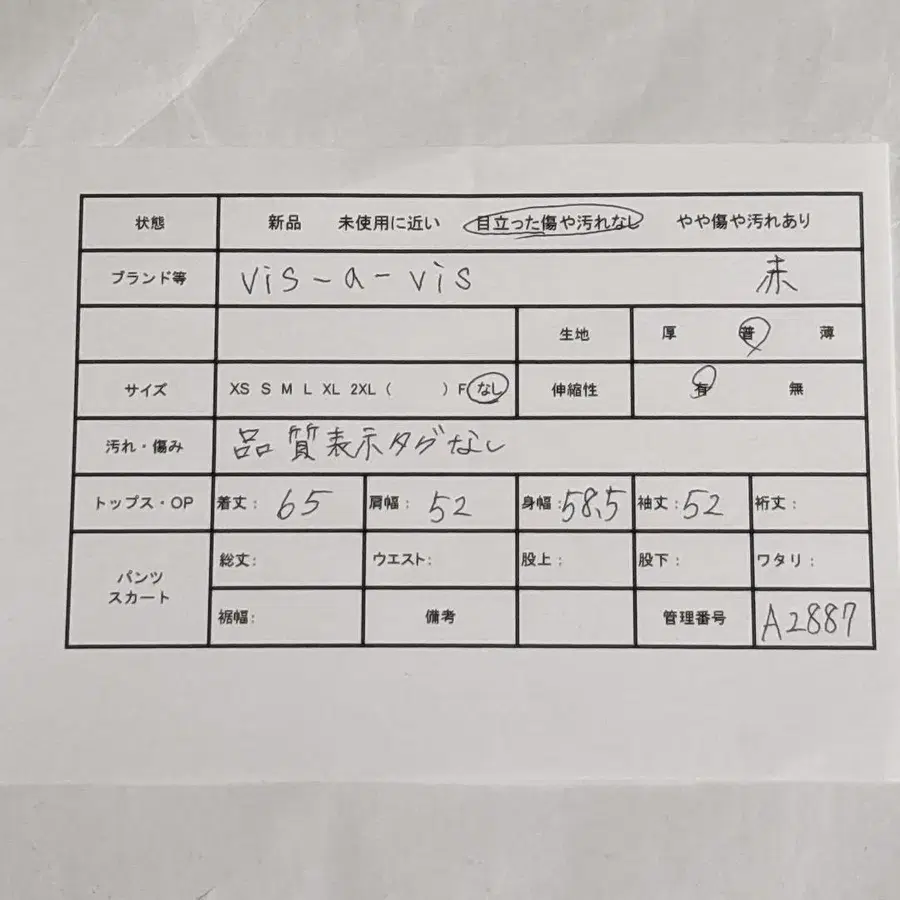 状態 新品 未使用に近い 目立った傷や汚れなし やや傷や汚れあり
ブランド等 vis-a-vis 赤
生地 厚 普 薄
サイズ XS S M L XL 2XL ( ) F なし 伸縮性 有 無
汚れ・傷み 品質表示タグなし
トップス・OP 着丈: 65 肩幅: 52 身幅: 58.5 袖丈: 52 裄丈:
パンツ
スカート
総丈: ウエスト: 股上: 股下: ワタリ:
裾幅: 備考 管理番号 A2887